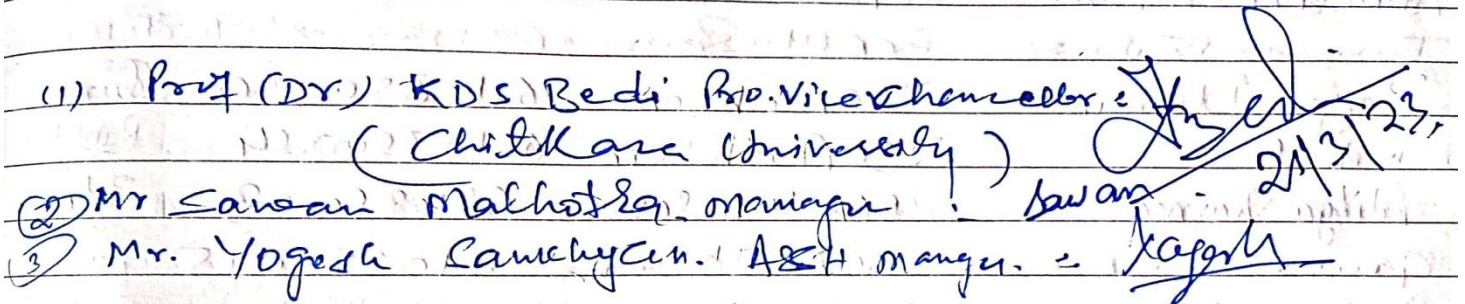 (1) Prof (Dr.) KDS Bedi Pro. Vice Chancellor :
(Chitkara University) 21/3/23,
(2) Mr Sawan Malhotra. manager : Sawan
(3) Mr. Yogesh manger. : Yogesh